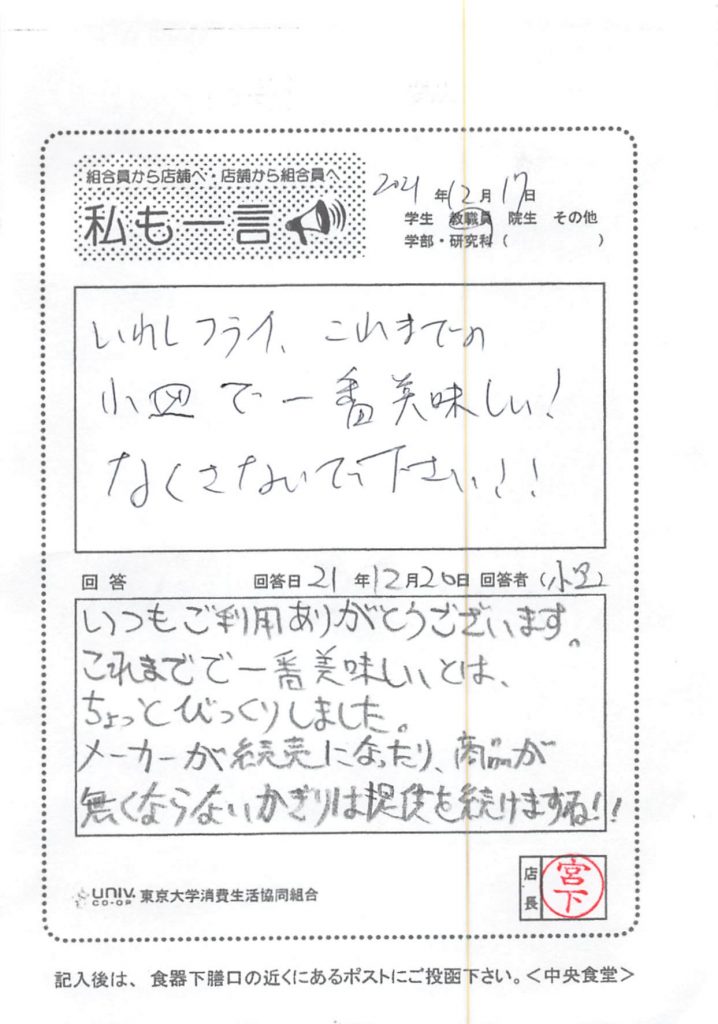 組合員から店舗へ・店舗から組合員へ
私も一言
2021年12月17日
学生 教職員 院生 その他
学部・研究科( )
いわしフライ、これまでの
小皿で一番美味しい!
なくさないで下さい!!
回答 回答日 21年12月20日 回答者
いつもご利用ありがとうございます。
これまでで一番美味しいとは、
ちょっとびっくりしました。
メーカーが終売になったり、商品が
無くならないかぎりは提供を続けますね!!
UNIV. CO-OP 東京大学消費生活協同組合
店長 宮下
記入後は、食器下膳口の近くにあるポストにご投函下さい。<中央食堂>